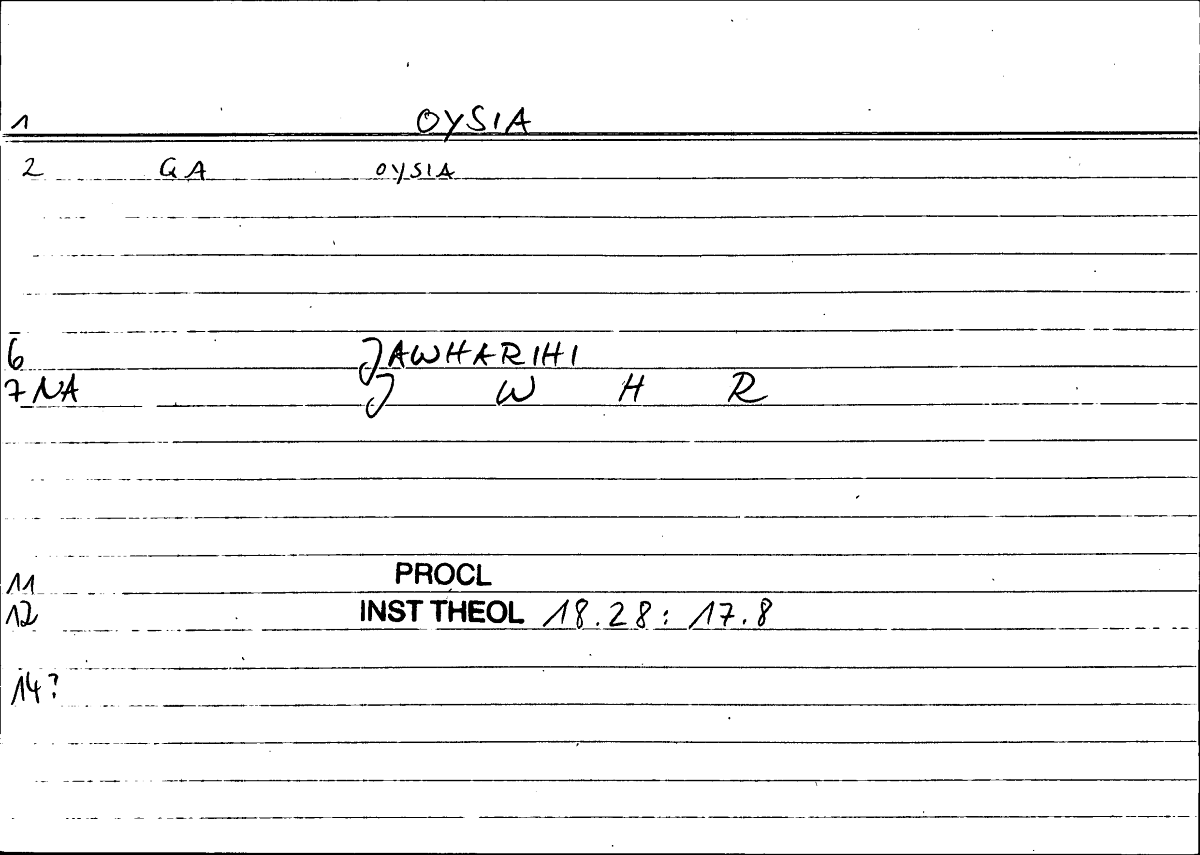 1 OYSIA
2 GA OYSIA
6 JAWHARIHI
7 NA J W H R
11 PROCL
12 INST THEOL 18.28: 17.8
14?